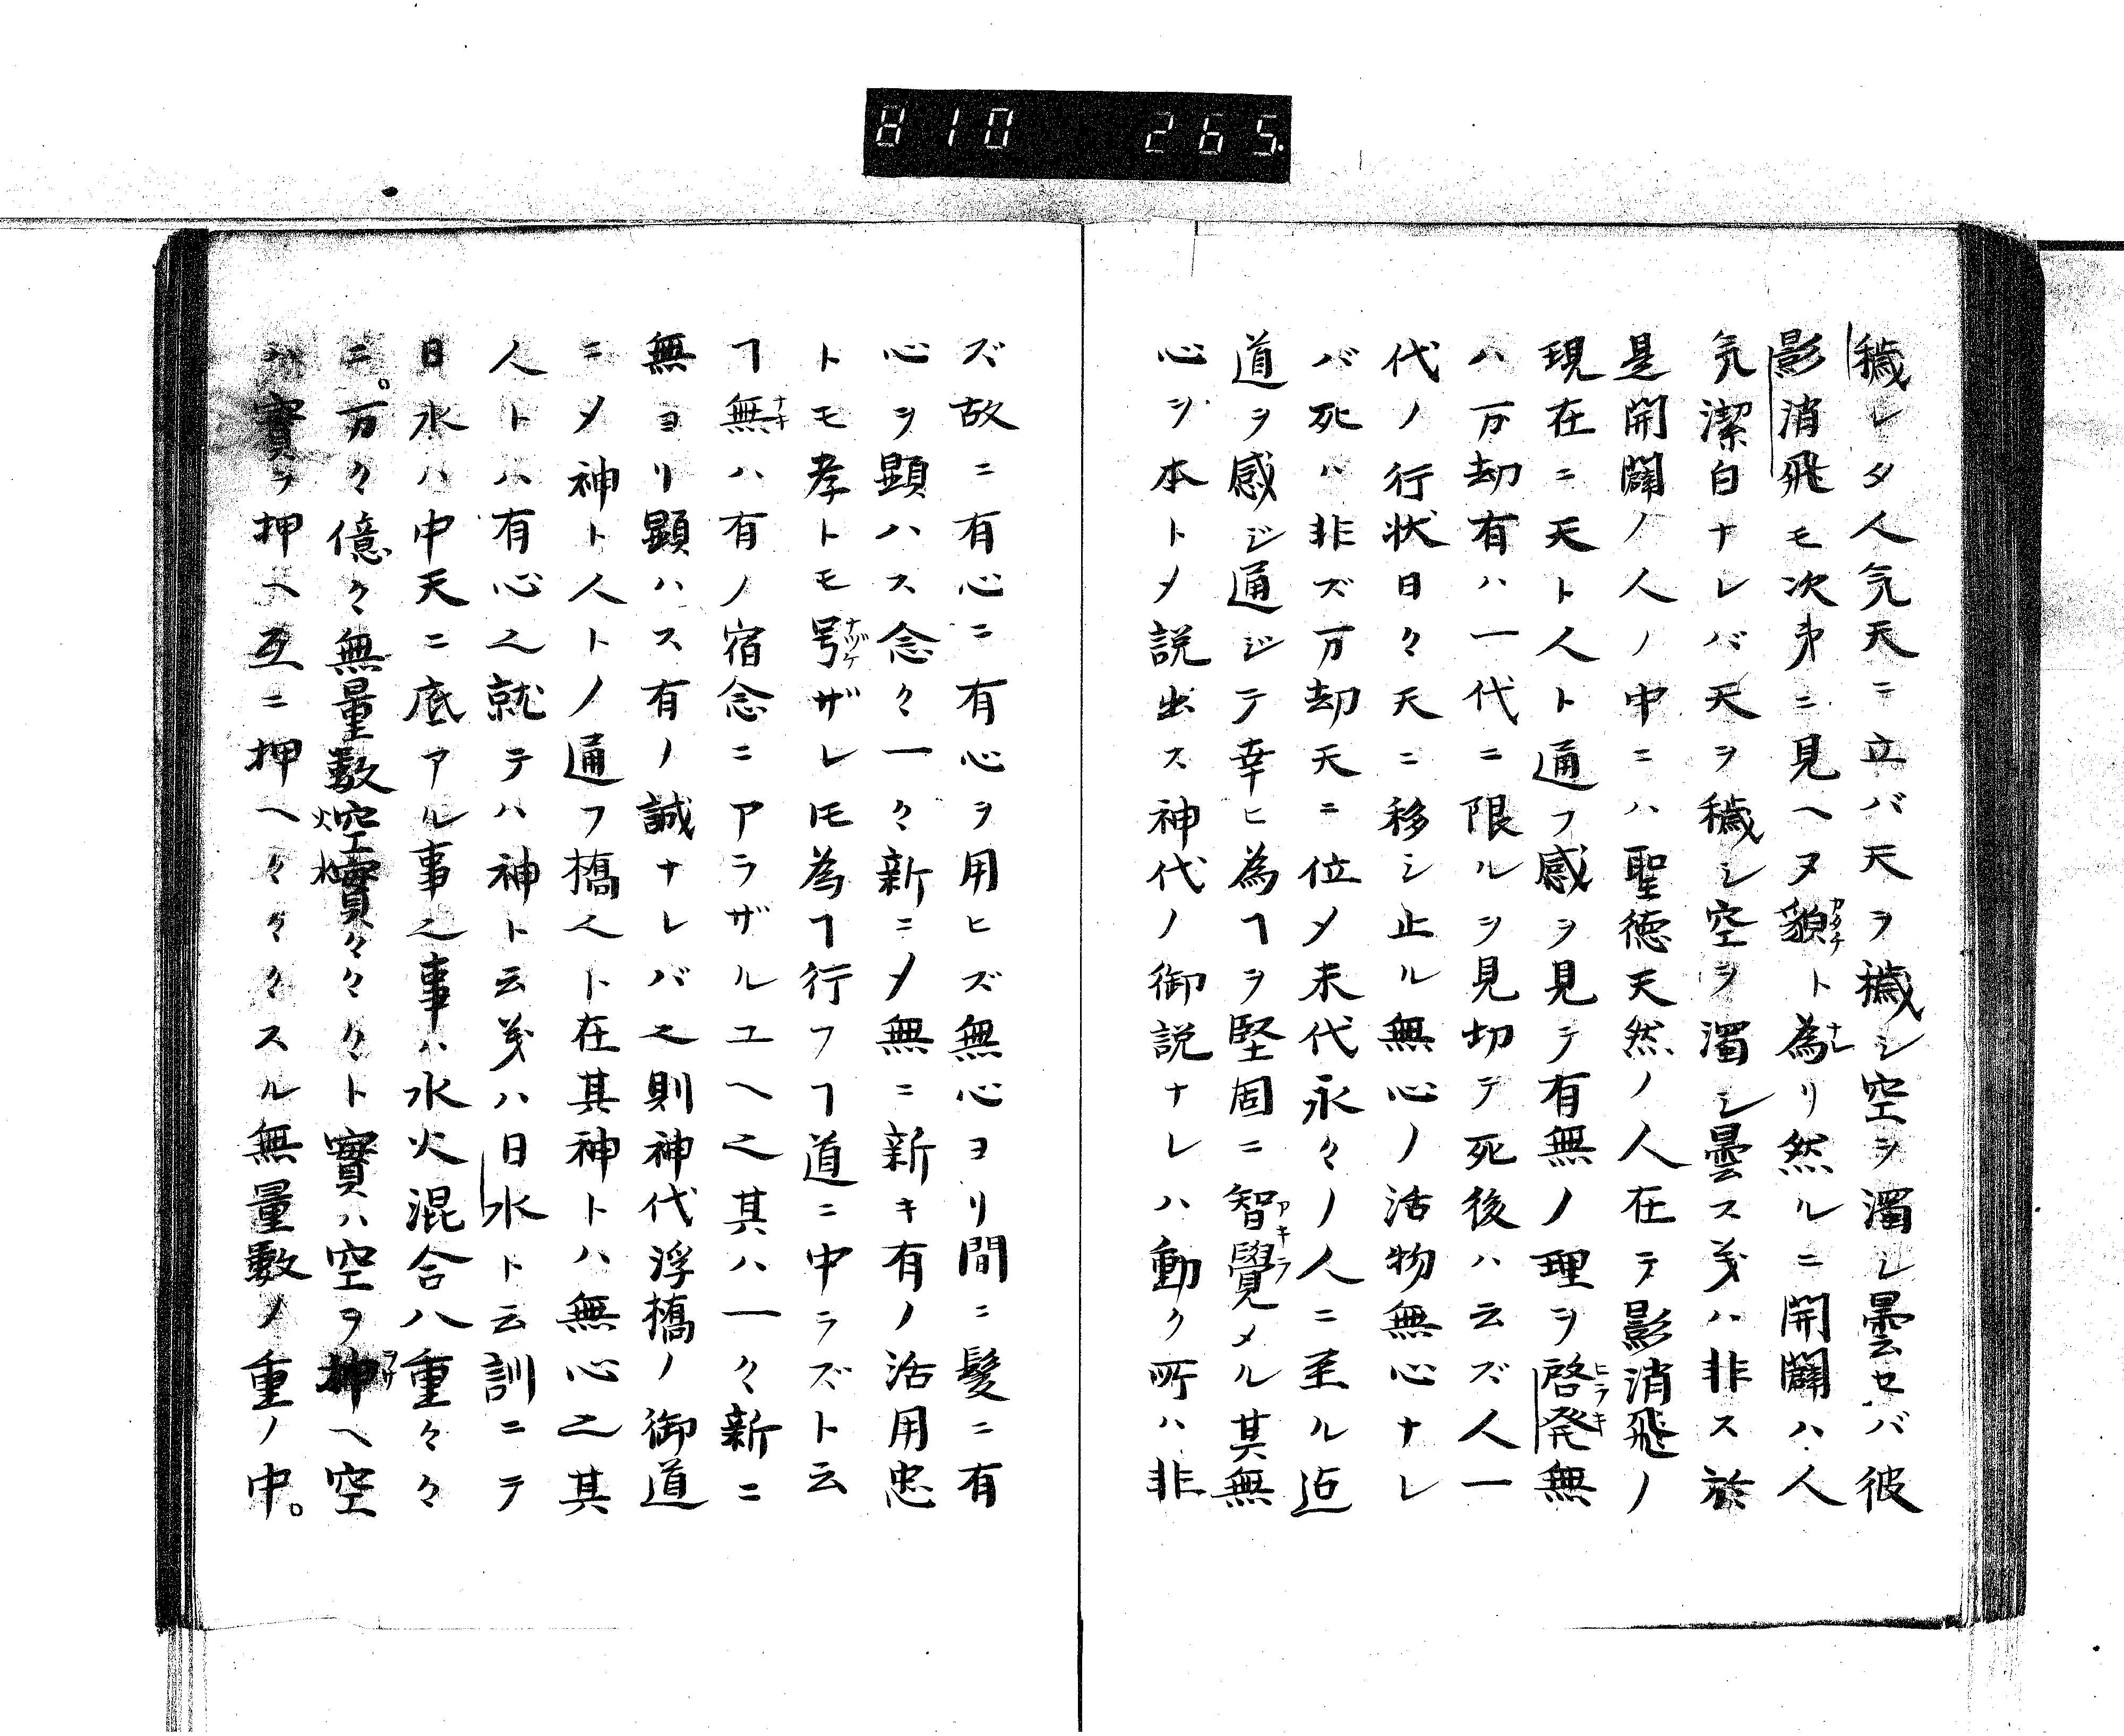 810 265.
穢レタ人気天ニ立バ天ヲ穢シ空ヲ濁シ曇セバ彼
影消飛モ次第ニ見ヘヌ貌ト為リ然ルニ開闢ハ人
気潔白ナレバ天ヲ穢シ空ヲ濁シ曇ス㫖ハ非ス於
是開闢ノ人ノ中ニハ聖徳天然ノ人在テ影消飛ノ
現在ニ天ト人ト通フ感ヲ見テ有無ノ理ヲ啓発無
ハ万劫有ハ一代ニ限ルヲ見切テ死後ハ云ズ人一
代ノ行状日々天ニ移シ止ル無心ノ活物無心ナレ
バ死ハ非ズ万劫天ニ位メ末代永々ノ人ニ至ル迠
道ヲ感ジ通ジテ幸ヒ為ヿヲ堅固ニ智覺メル其無
心ヲ本トメ説出ス神代ノ御説ナレハ動ク所ハ非
ズ故ニ有心ニ有心ヲ用ヒズ無心ヨリ間ニ髪ニ有
心ヲ顕ハス念々一々新ニメ無ニ新キ有ノ活用忠
トモ孝トモ号ザレ𪜈為ヿ行フヿ道ニ中ラズト云
ヿ無ハ有ノ宿念ニアラザルユヘ之其ハ一々新ニ
無ヨリ顕ハス有ノ誠ナレバ之則神代浮橋ノ御道
ニメ神ト人トノ通フ橋之ト在其神トハ無心之其
人トハ有心之就テハ神ト云㫖ハ日水ト云訓ニテ
日水ハ中天ニ底アル事之事ハ水火混合八重々々
ニ。万々億々無量數空實々々々ト實ハ空ヲ押ヘ空
ハ實ヲ押ヘ互ニ押ヘ々々々スル無量數ノ重ノ中。